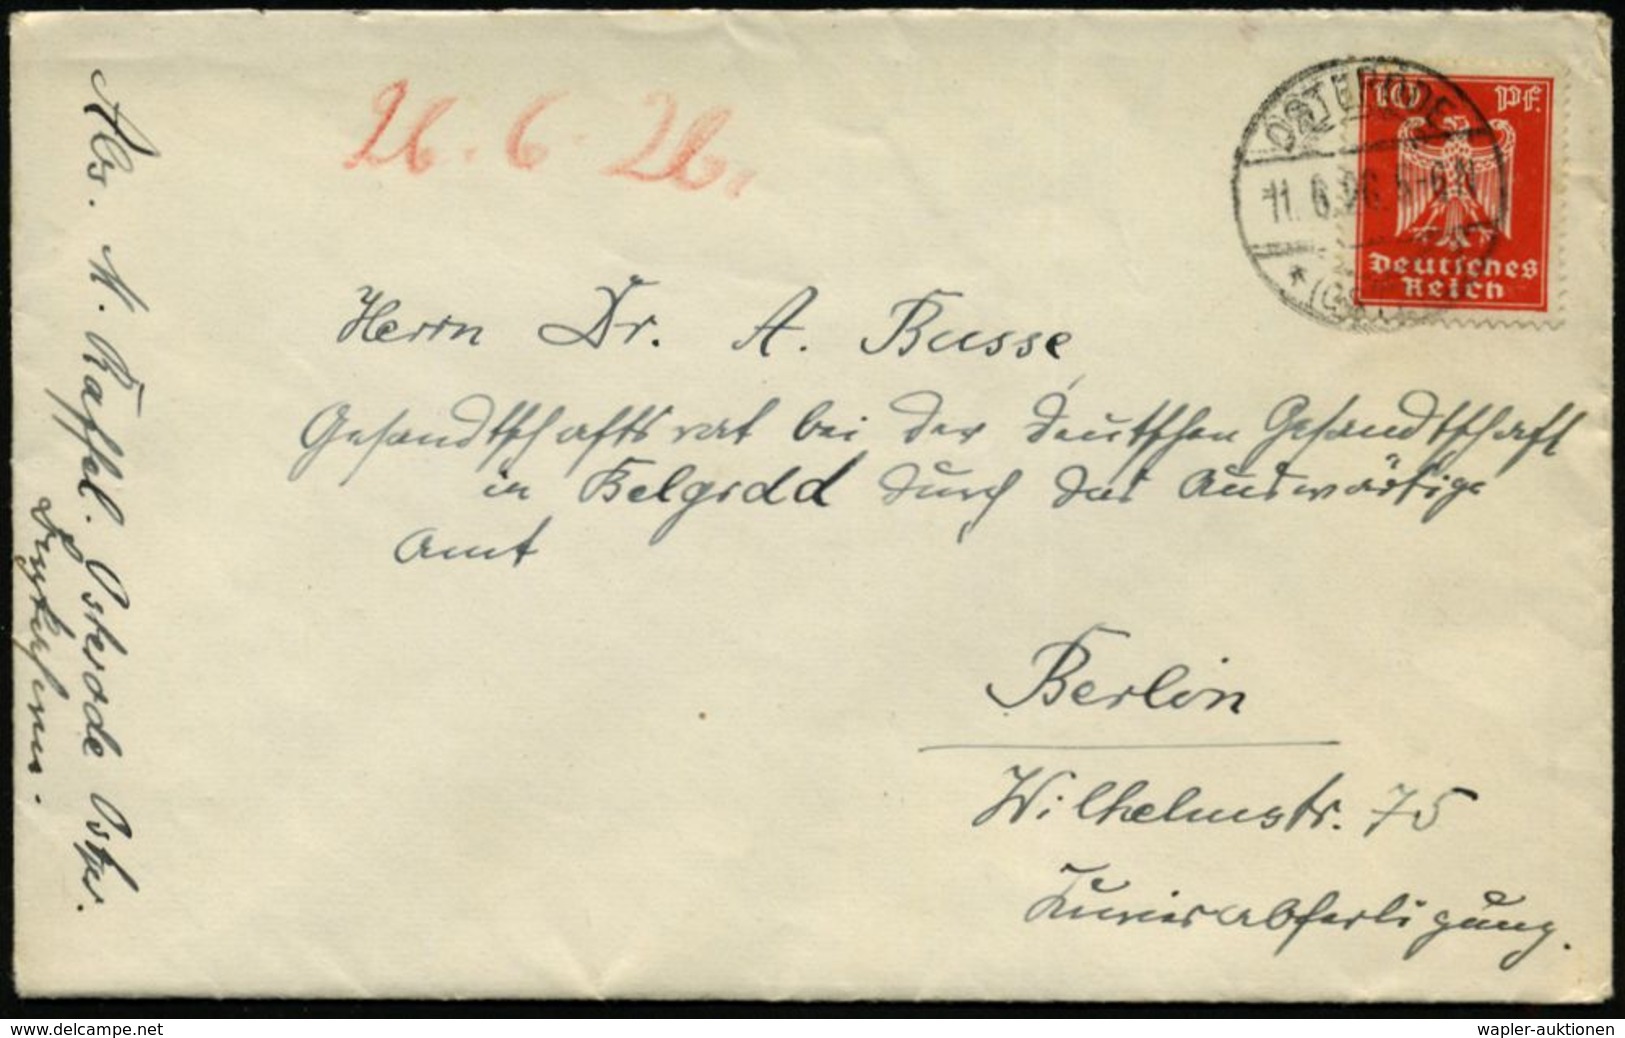 26. 6. 26.
10 Pf.
OSTERODE
11. 6. 26. 5-6 N
Deutsches
Reich
Herrn Dr. A. Busse
Gesandtschaftsrat bei der Deutschen Gesandtschaft
in Belgrad durch das Auswärtige
Amt
Berlin
Wilhelmstr. 75
Kurierabfertigung.
Abs. N. Raffel. Osterode Ostpr.
www.delcampe.net
wapler-auktionen